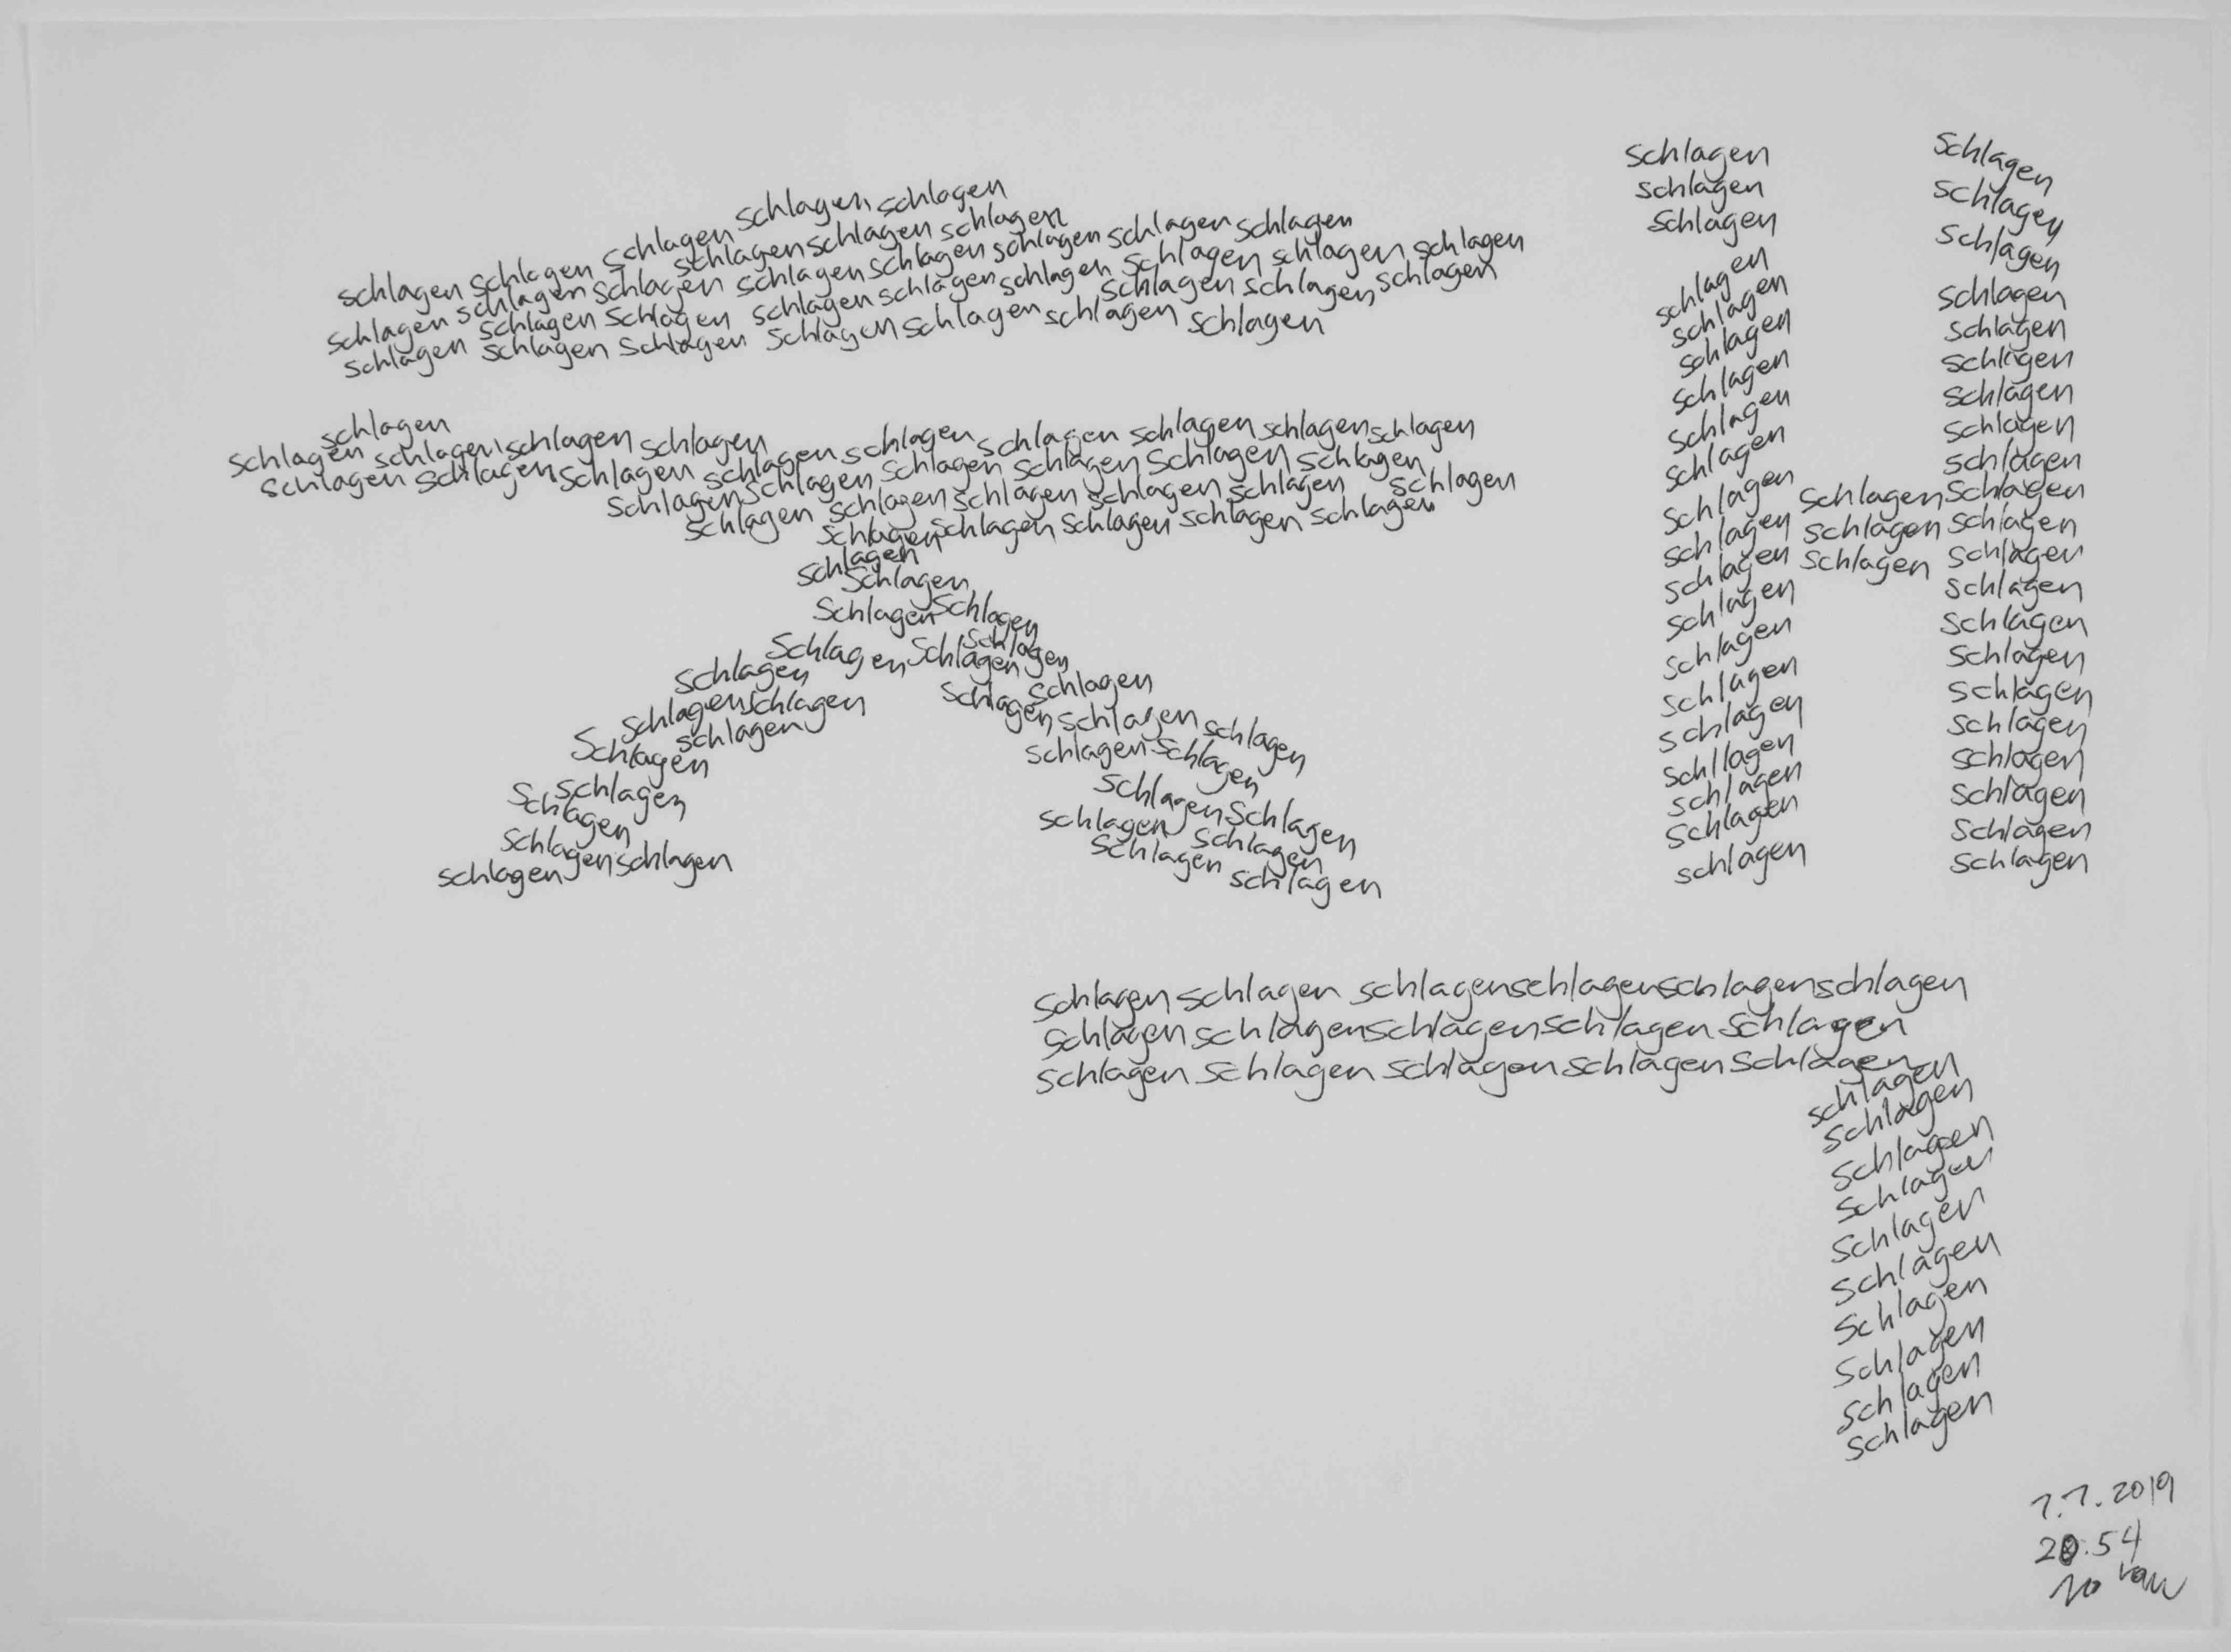 schlagen schlagen schlagen schlagen schlagen
schlagen schlagen schlagen schlagen schlagen schlagen
schlagen schlagen schlagen schlagen schlagen schlagen schlagen schlagen
schlagen schlagen schlagen schlagen schlagen schlagen schlagen schlagen
schlagen schlagen schlagen schlagen schlagen schlagen schlagen
schlagen
schlagen schlagen schlagen schlagen
schlagen schlagen schlagen schlagen schlagen schlagen schlagen schlagen schlagen
schlagen schlagen schlagen schlagen schlagen schlagen
schlagen schlagen schlagen schlagen schlagen schlagen
schlagen schlagen schlagen schlagen schlagen
schlagen
schlagen
schlagen schlagen
schlagen
schlagen schlagen
schlagen schlagen
schlagen schlagen schlagen schlagen schlagen
schlagen schlagen schlagen
schlagen
schlagen schlagen schlagen
schlagen schlagen schlagen
schlagen schlagen
schlagen schlagen schlagen
schlagen schlagen
schlagen schlagen
schlagen schlagen
schlagen schlagen
schlagen schlagen
schlagen schlagen
schlagen schlagen
schlagen schlagen
schlagen schlagen
schlagen schlagen
schlagen schlagen schlagen
schlagen schlagen schlagen
schlagen schlagen schlagen
schlagen schlagen
schlagen schlagen
schlagen schlagen
schlagen schlagen
schllagen schlagen
schlagen schlagen
schlagen schlagen
schlagen schlagen
schlagen
schlagen schlagen schlagenschlagenschlagenschlagen
schlagen schlagenschlagenschlagen schlagen
schlagen schlagen schlagen schlagen schlagen
schlagen
schlagen
schlagen
schlagen
schlagen
schlagen
schlagen
schlagen
schlagen
schlagen
7.7.2019
20.54